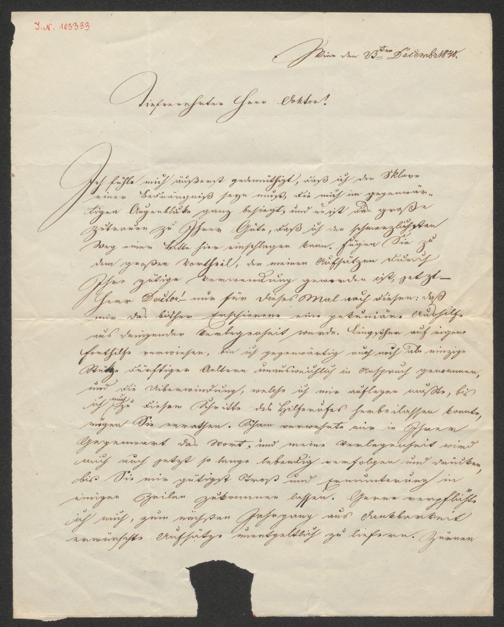 I.N. 103333
Wien den 23ten Dezember 1841.
Tiefverehrter Herr Doktor!
Ich fühle mich äußerst gedemüthigt, daß ich der Sklave
einer Bedrängniß seyn muß, die mich im gegenwär-
tigen Augenblicke ganz besiegt, und es ist das große
Zutrauen zu Ihrer Güte, daß ich den schmerzlichsten
Weg einer Bitte hier einschlagen kann. Fügen Sie zu
dem großen Vortheil, der meinen Aufsätzen durch
Ihre gütige Verwendung geworden ist, jetzt —
Herr Doctor mir für dieses Mal noch diesen: daß
mir das bisher Erschienene eine pekuniäre Aushülfe
aus dringender Verlegenheit werde.
ich gegenwärtig auch noch als einzige
Stütze dürftiger Aeltern in Anspruch genommen,
und die Ueberwindung, welche ich mir auflegen mußte, bis
ich mich zu diesem Schritte des Hilferufes herbeilassen konnte,
mögen Sie errathen. Scham verwehrte mir in Ihrer
Gegenwart das Wort, und meine Verlegenheit wird
mich auch jetzt so lange lebendig verfolgen und drücken,
bis Sie mir gütigst Trost und Ermunterung in
einigen Zeilen zukommen lassen. Gerne verpflichte
ich mich, zum nächsten Jahrgang aus Dankbarkeit
erwünschte Aufsätze unentgeltlich zu liefern. Zürnen